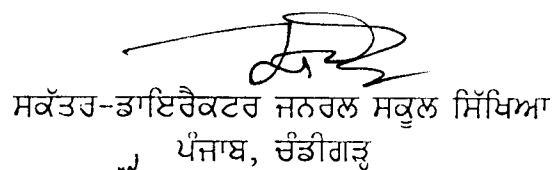 ਸਕੱਤਰ-ਡਾਇਰੈਕਟਰ ਜਨਰਲ ਸਕੂਲ ਸਿੱਖਿਆ
ਪੰਜਾਬ, ਚੰਡੀਗੜ੍ਹ